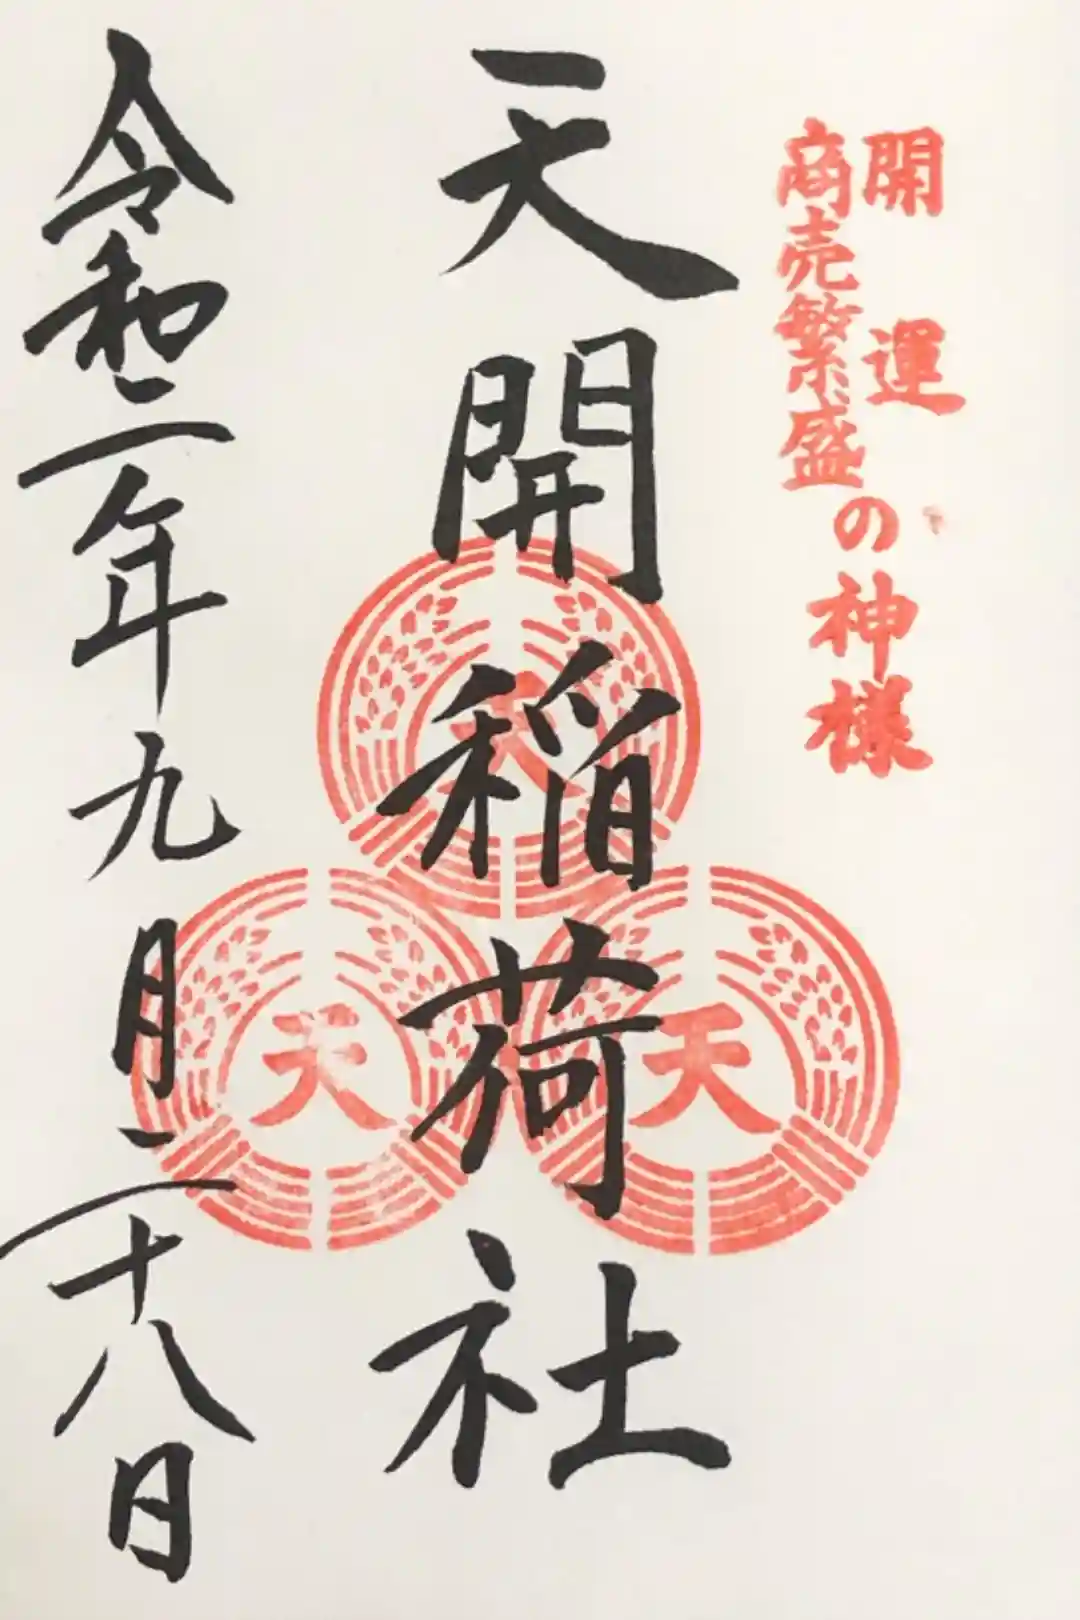 開運
商売繁盛
の神様
天開稲荷社
令和二年九月二十八日
天
天
天